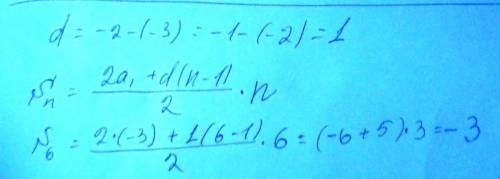 d = -2-(-3) = -1-(-2) = 1
Sₙ = (2a₁ + d(n-1))/2 · n
S₆ = (2·(-3) + 1(6-1))/2 · 6 = (-6+5)·3 = -3